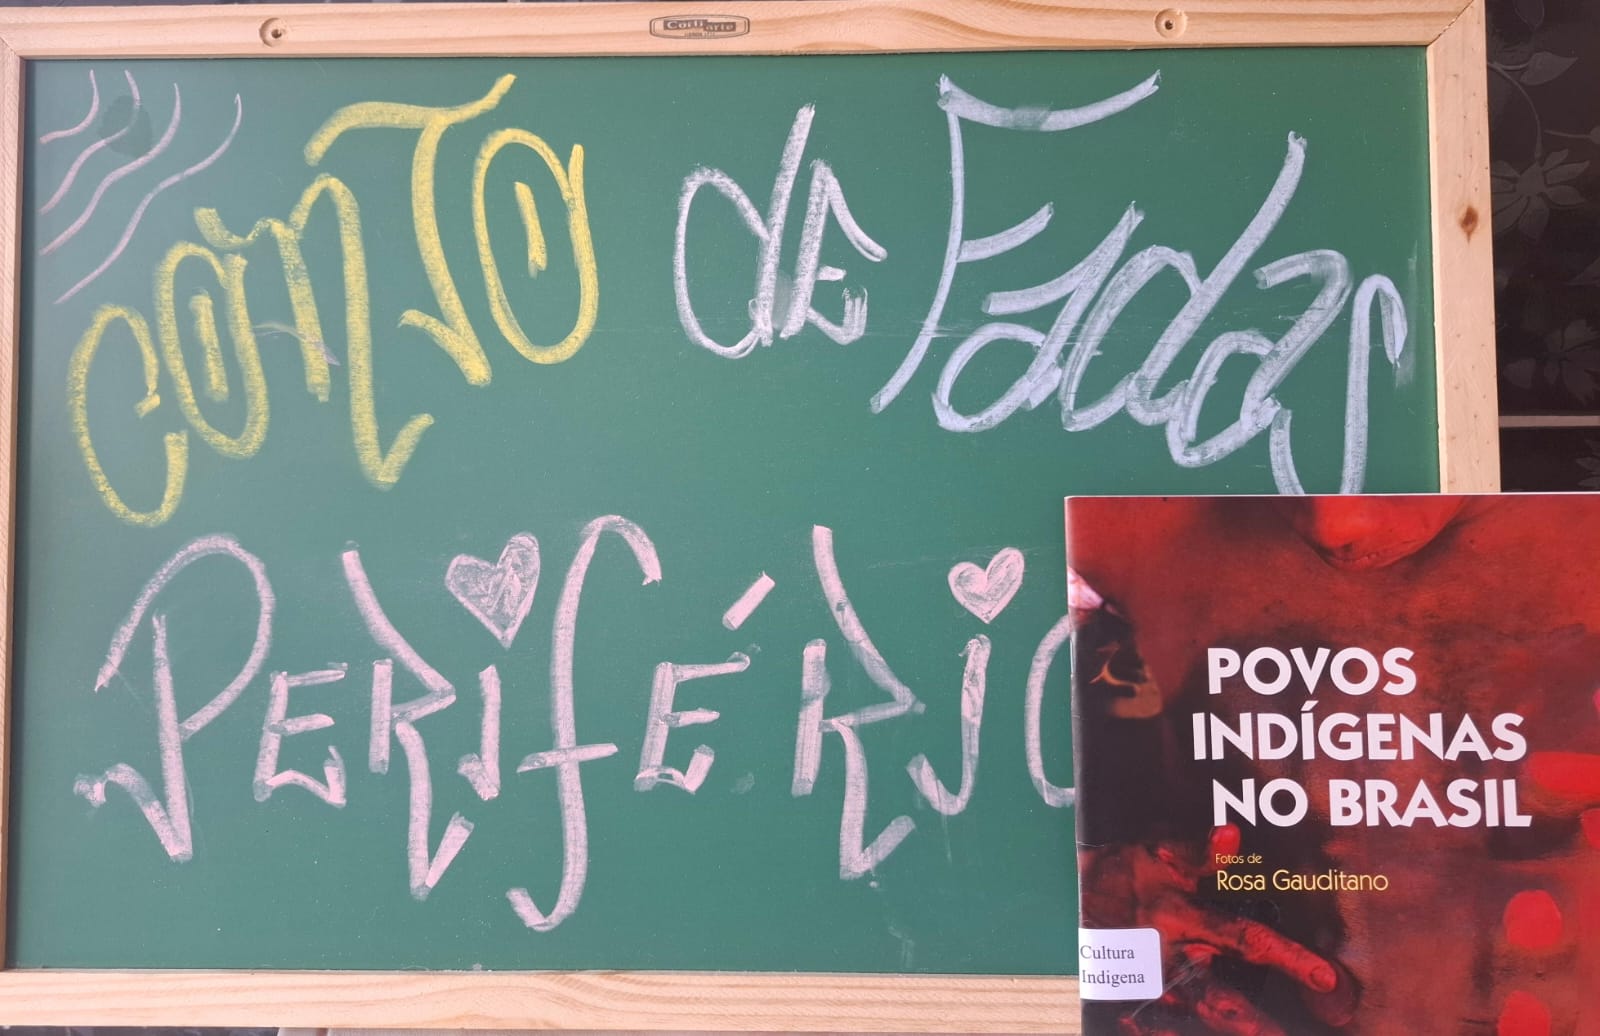 Corti arte
CONTO de Fadas
PERIFÉRICO
POVOS
INDÍGENAS
NO BRASIL
Fotos de
Rosa Gauditano
Cultura
Indigena